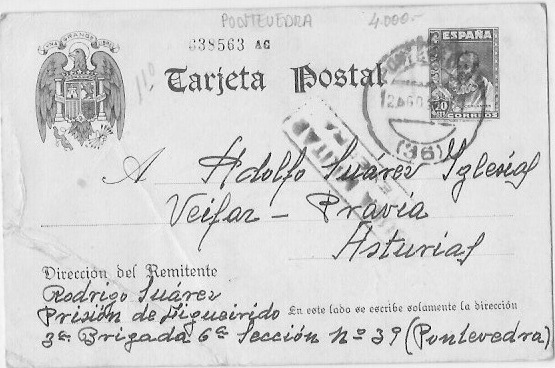 PONTEVEDRA 4.000-
638563 AG
Tarjeta Postal
ESPAÑA
CORREOS
(36)
A Adolfo Suárez Yglesias
Veifar - Pravia
Asturias
Dirección del Remitente
Rodrigo Suárez
Prisión de Figueirido
En este lado se escribe solamente la dirección
3ª Brigada 6ª Sección Nº 39 (Pontevedra)